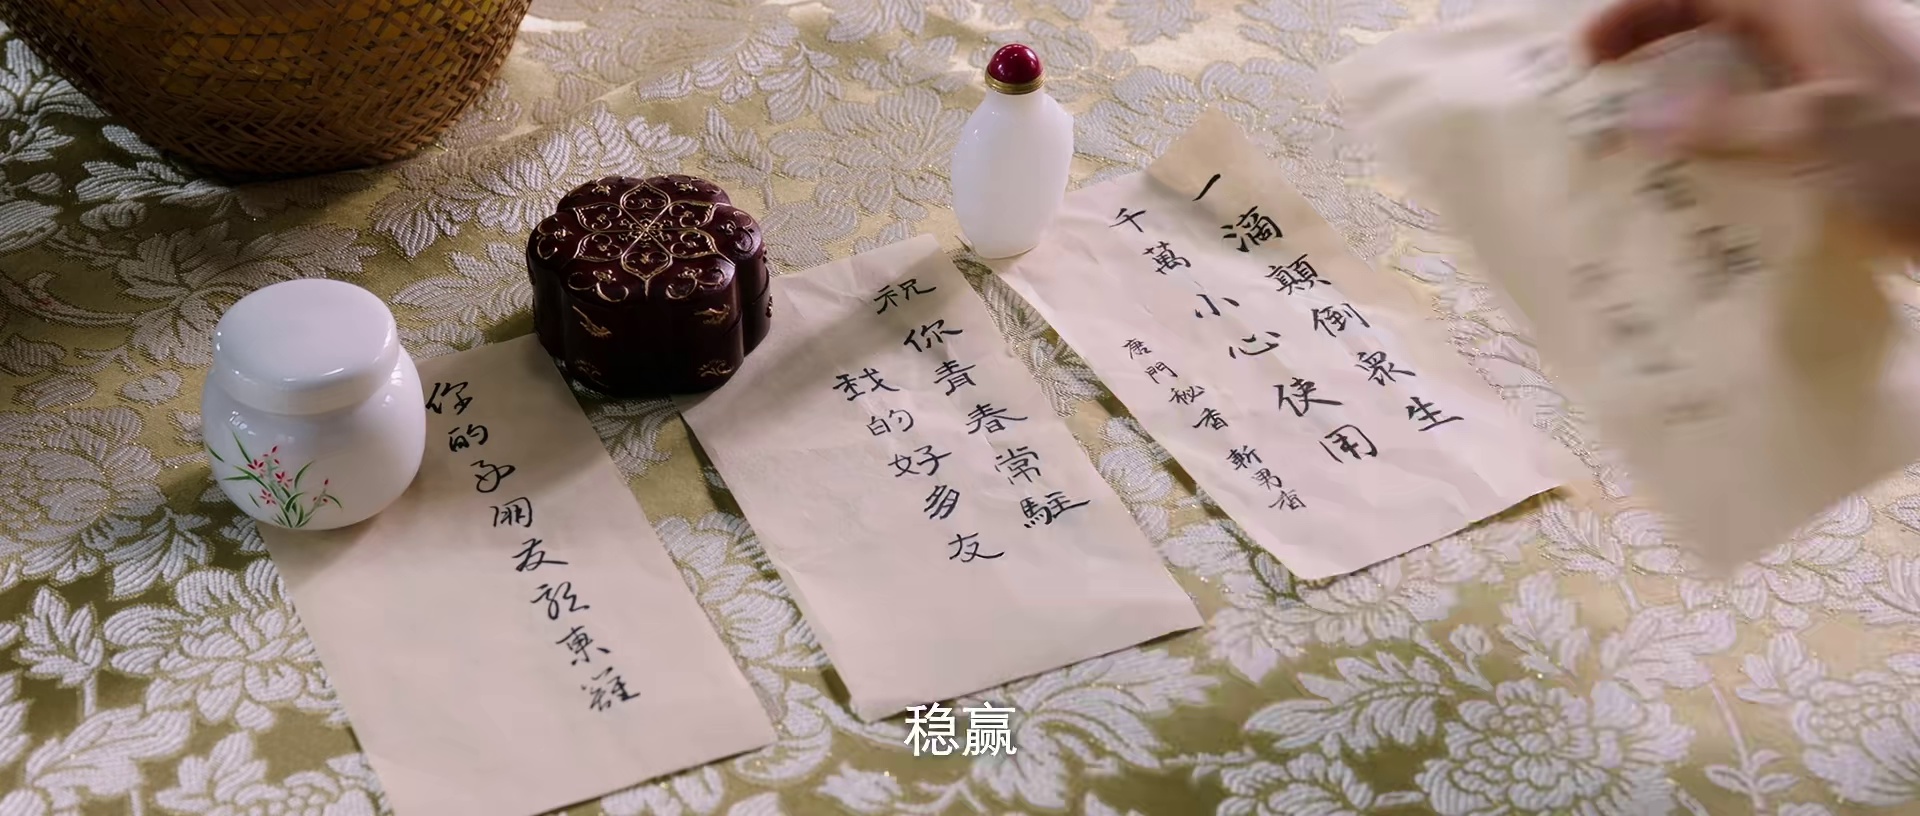 一滴顛倒眾生
千萬小心使用
唐門秘香 斬男香
祝你青春常駐
我的好多友
你的好朋友東籬
稳赢